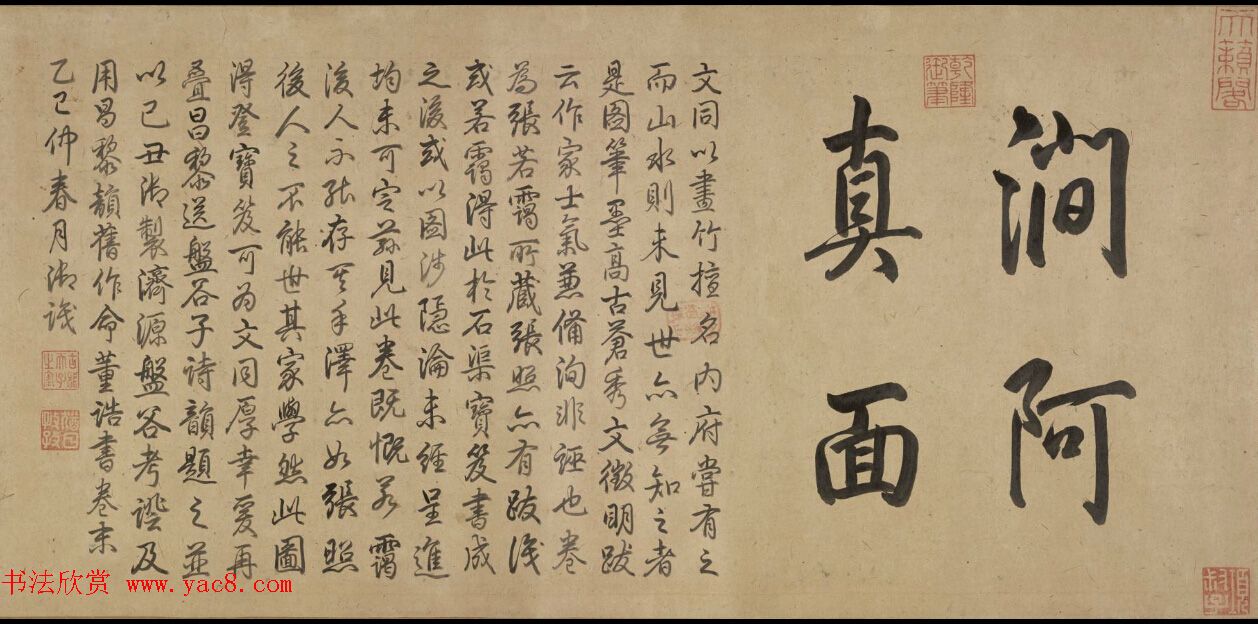 澗阿
真面
乾隆御筆
天籟閣
文同以畫竹擅名內府嘗有之
而山水則未見世亦無知之者
是圖筆墨高古蒼秀文徵明跋
云作家士氣兼備洵非誣也卷
為張若靄所藏張照亦有跋識
或若靄得此於石渠寶笈書成
之後或以圖涉隱淪未經呈進
均未可定茲見此卷既慨若靄
後人不能存其手澤亦如張照
後人之不能世其家學然此圖
得登寶笈可為文同厚幸爰再
疊昌黎送盤谷子詩韻題之並
以己丑御製濟源盤谷考證及
用昌黎韻舊作命董誥書卷末
乙巳仲春月御識
书法欣赏 www.yac8.com